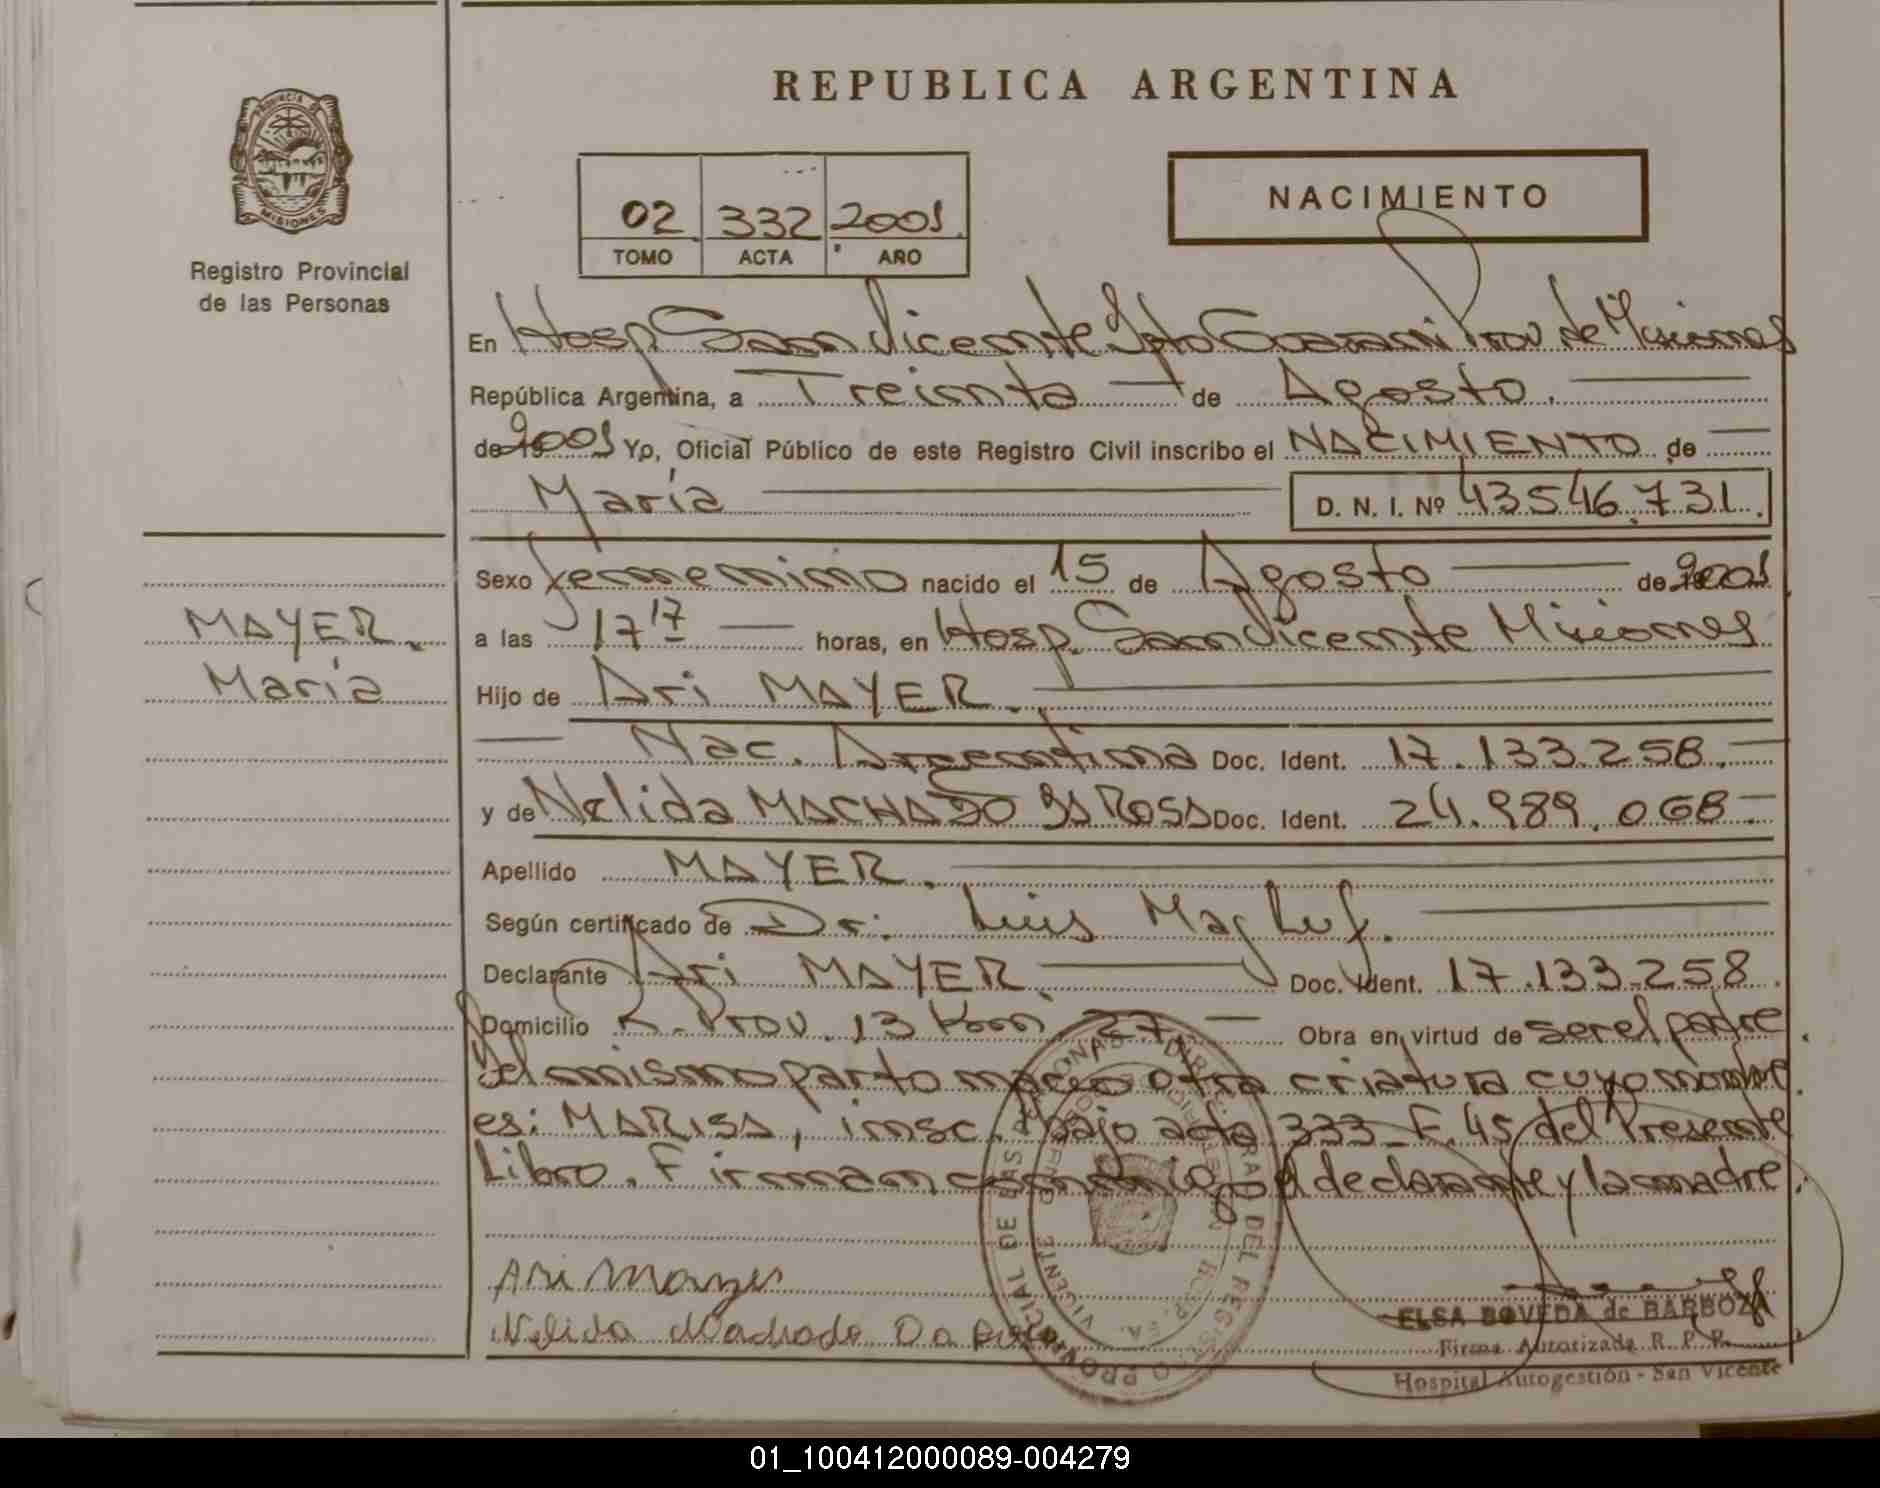 REPUBLICA ARGENTINA
PROVINCIA DE
MISIONES
Registro Provincial
de las Personas
02 332 2001
TOMO ACTA AÑO
NACIMIENTO
En Hosp San Vicente Dpto Guarani Prov de Misiones
República Argentina, a Treinta de Agosto.
de 2001 Yo, Oficial Público de este Registro Civil inscribo el NACIMIENTO de
María D. N. I. Nº 43.546.731.
MAYER.
María
Sexo femenino nacido el 15 de Agosto de 2001
a las 17 17 horas, en Hosp. San Vicente Misiones
Hijo de Ari MAYER.
Nac. Argentina Doc. Ident. 17.133.258.
y de Nelida MACHADO DA ROSA Doc. Ident. 24.989.068.
Apellido MAYER.
Según certificado de Dr. Luis Magluf.
Declarante Ari MAYER. Doc. Ident. 17.133.258.
Domicilio R. Prov. 13 Km 27 Obra en virtud de ser el padre
Del mismo parto nacio otra criatura cuyo nombre
es: MARISA, insc. bajo acta 333-F.45 del Presente
Libro. Firman conmigo el declarante y la madre.
Ari Mayer
Nelida Machado Da Rosa
ELSA BOVEDA de BARBOZA
Firma Autorizada R. P. P.
Hospital Autogestión - San Vicente
01_100412000089-004279